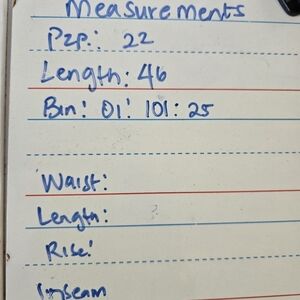 Measurements
P2P: 22
Length: 46
Bin: 01: 101: 25
Waist:
Length:
Rise:
Inseam